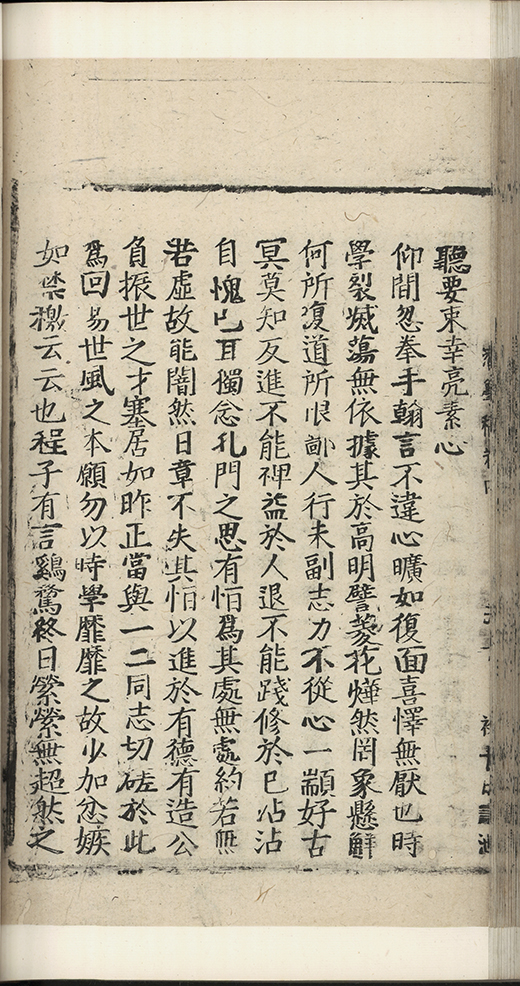 聽要束幸亮素心
仰間忽奉手翰言不違心曠如復面喜懌無厭也時
學裂滅蕩無依據其於高明譬菱花燁然罔象懸解
何所復道所恨鄙人行未副志力不從心一顓好古
冥莫知反進不能禆益於人退不能踐修於已沾沾
自愧已耳獨念孔門之思有恒為其處無處約若無
若虛故能闇然日章不失其恒以進於有德有造公
負振世之才塞居如昨正當與一二同志切磋於此
為回易世風之本願勿以時學靡靡之故少加忿嫉
如禁檄云云也程子有言鷄鶩終日縈縈無超然之